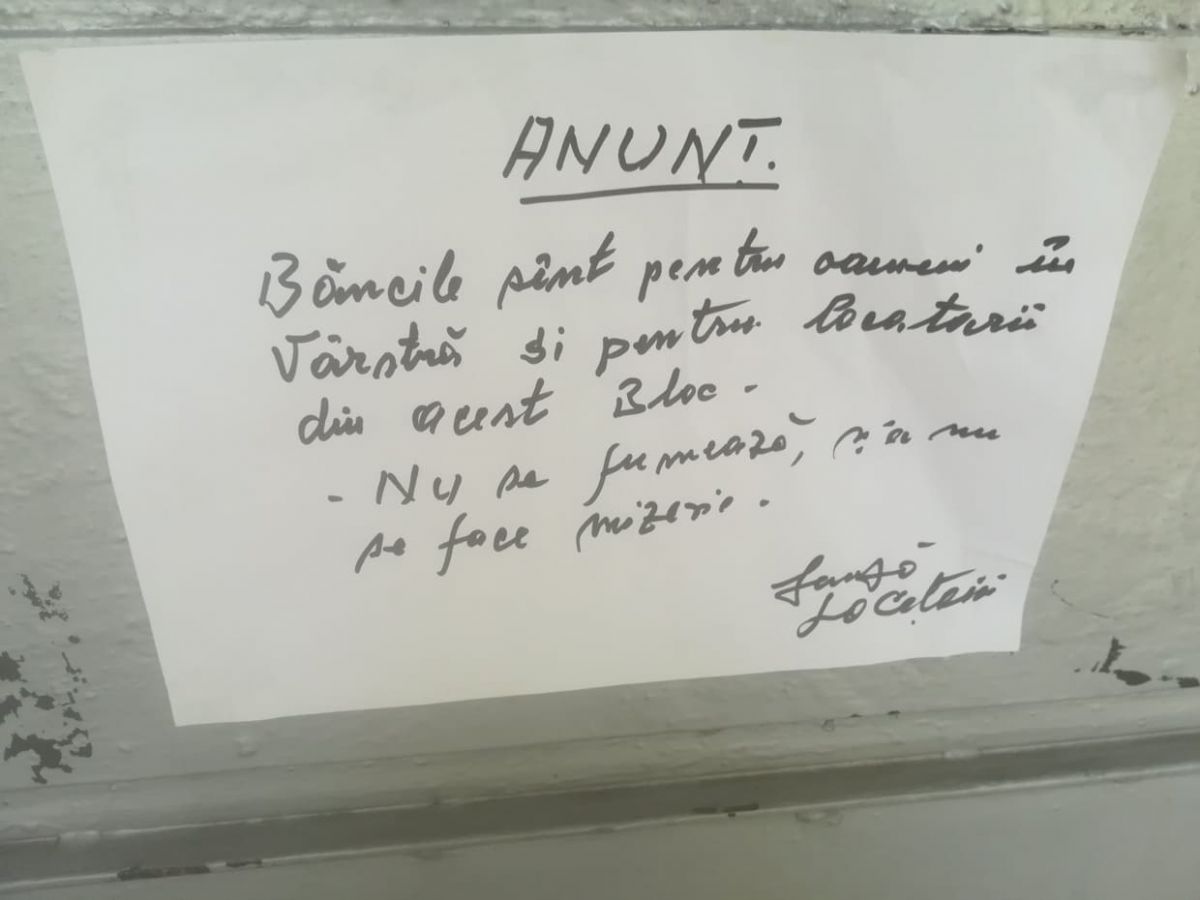 ANUNȚ.
Băncile sînt pentru oameni în
Vârstă și pentru locatarii
din acest Bloc -
- Nu se fumează, și a nu
se face mizerie.